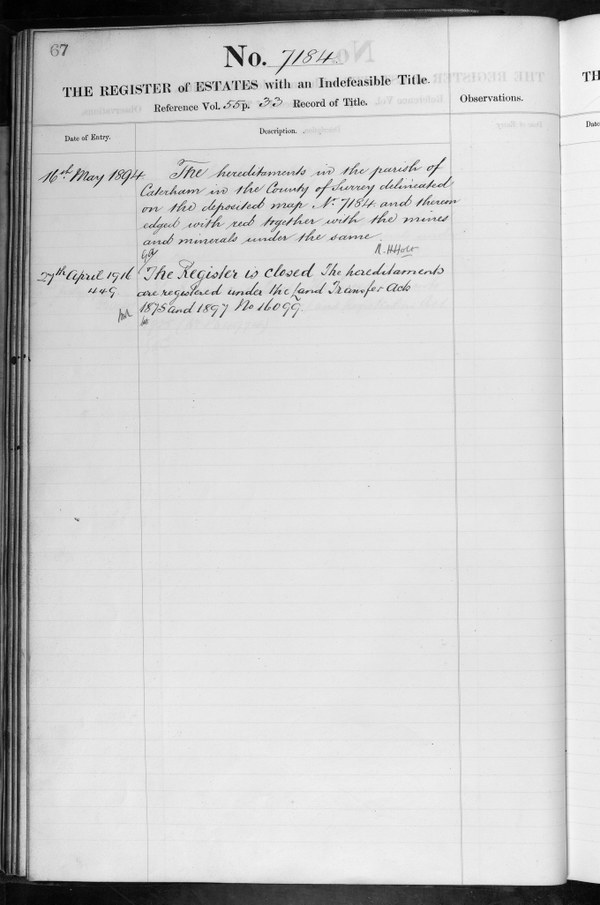 67
No. 7184.
THE REGISTER of ESTATES with an Indefeasible Title.
Reference Vol. 55 p. 33 Record of Title.
Observations.
Date of Entry.
Description.
16th May 1894.
The hereditaments in the parish of
Caterham in the County of Surrey delineated
on the deposited map No. 7184. and therein
edged with red together with the mines
and minerals under the same.
R. H Holt
27th April 1916
449
The Register is closed The hereditaments
are registered under the Land Transfer Acts
1875 and 1897 No 16099.
TH
Date